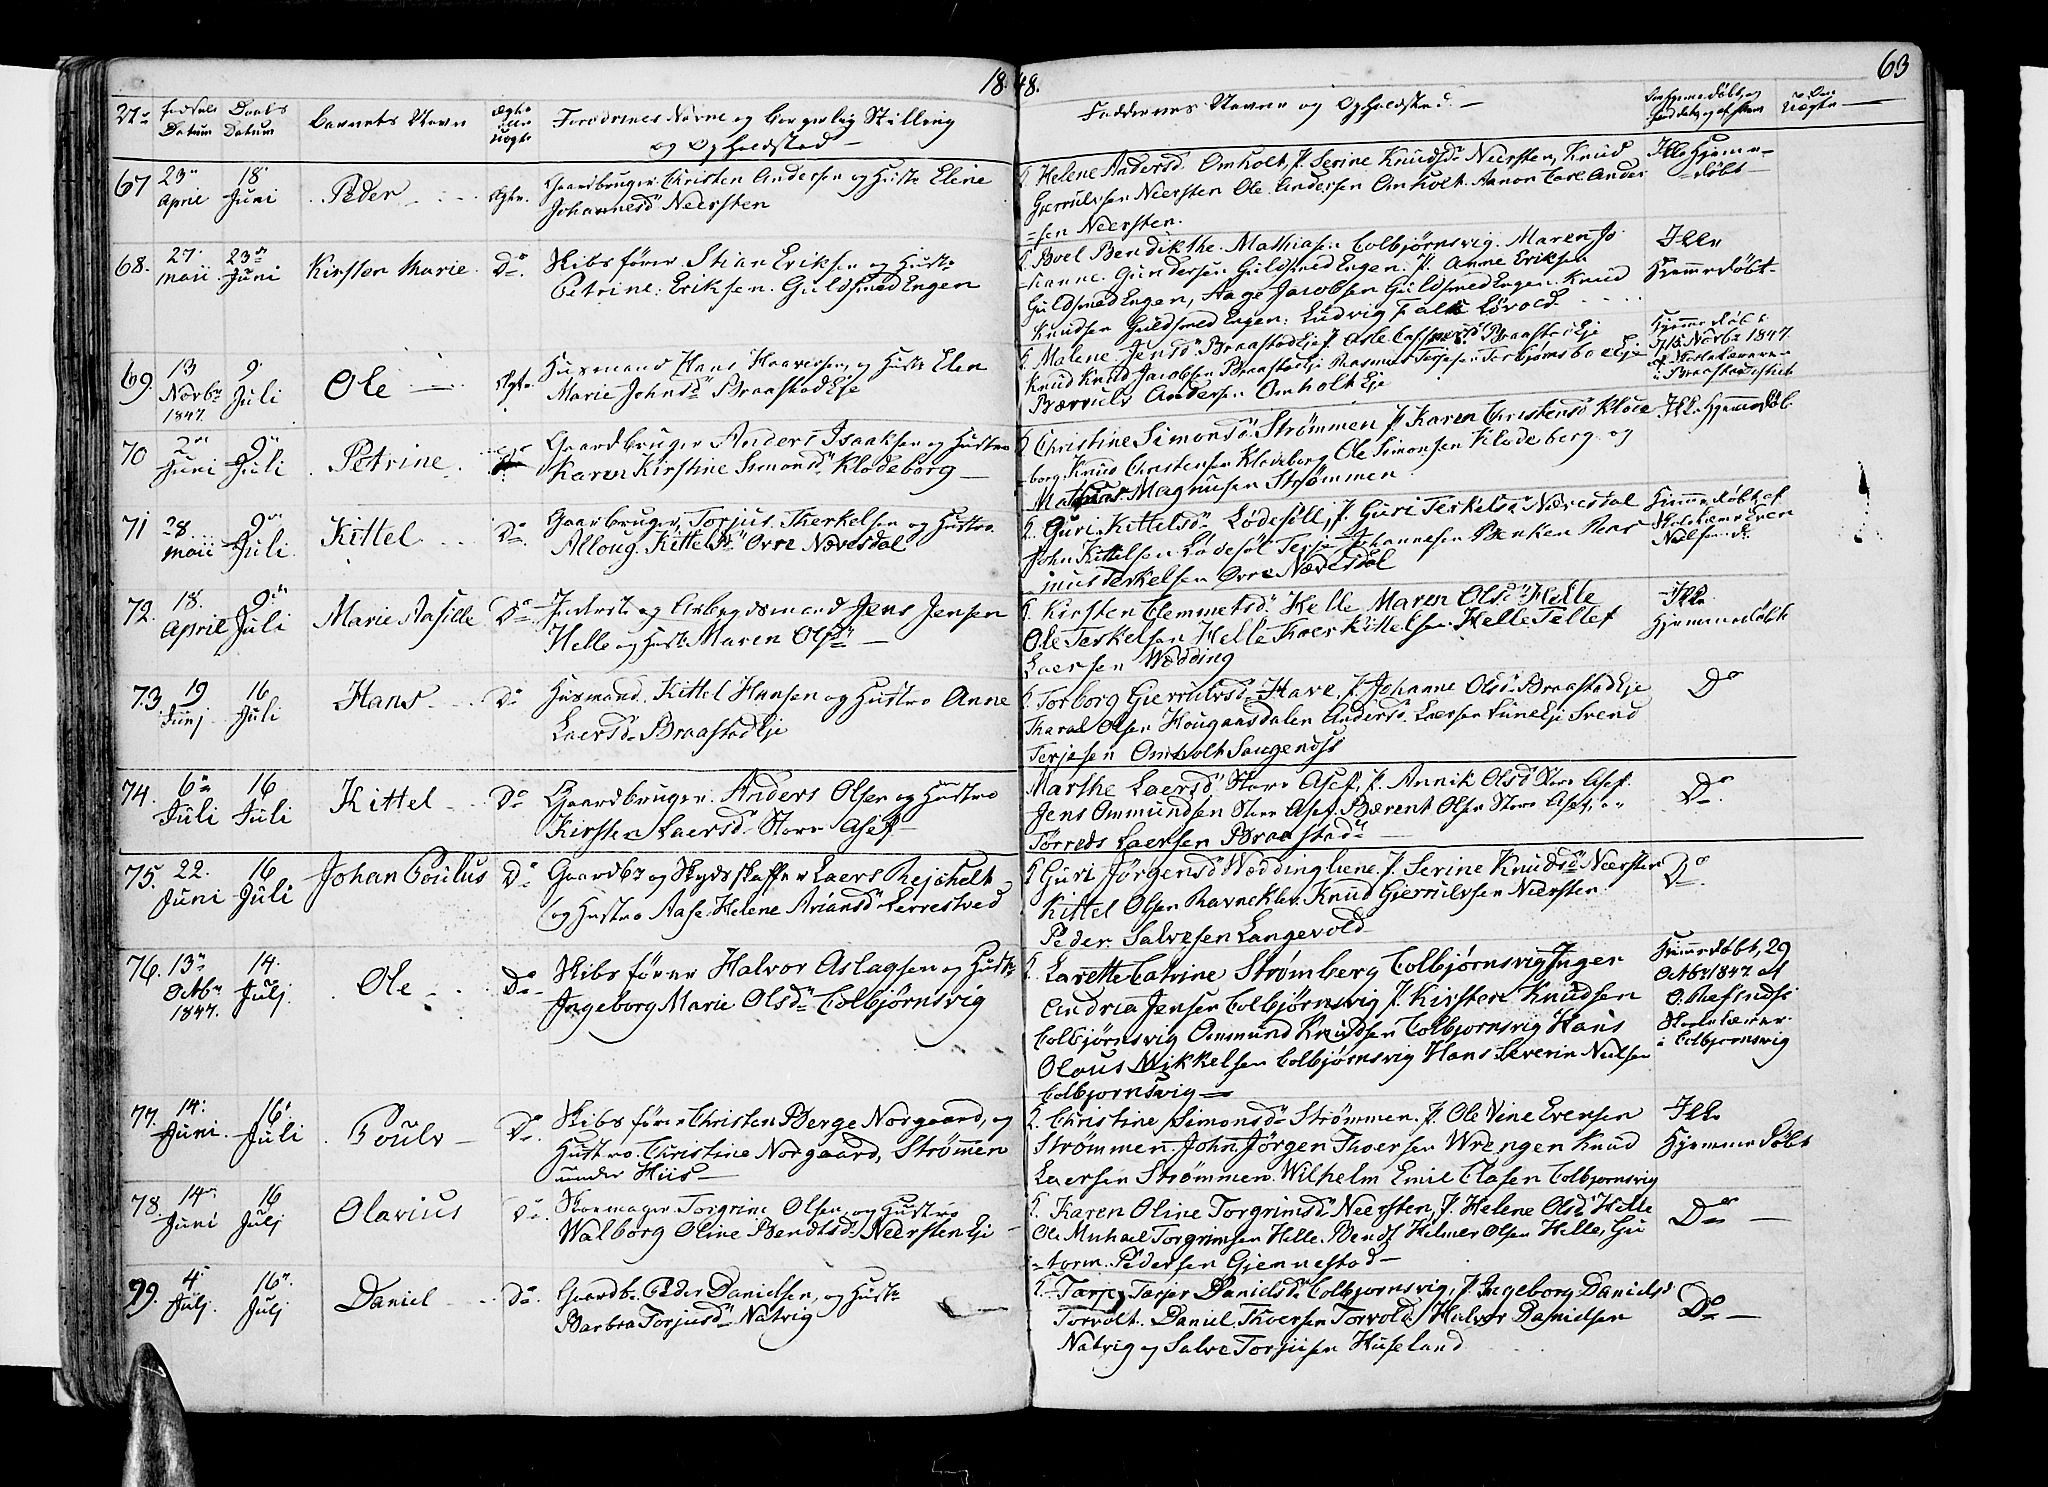 1848.
63
No
Fødsels Datum
Daabs Datum
Barnets Navn
Ægte eller Uægte
Forældrenes Navne og borgerlig Stilling
og Opholdsted
Faddernes Navne og Opholdsted
67
23de April
18 Juni
Peder
Ægte
Gaardbruger Christen Andersen og Hustr Elene
Johannesd Neersten
Helene Andersd Omholt, P. Serine Knudsd Neersten, Knud
Gjerrulvsen Neersten Ole Andersen Omholt Aanon Carl Ander
=sen Neersten.
Ikke Hjemme-
=døbt
68.
27. Maii
23de Juni
Kirsten Marie
Do
Skibsfører Stian Eriksen og Hustr
Petrine Eriksen Guldsmed Engen
Boel Bendikthe Mathiasen Colbjørnsvig. Maren Jo
=hanne Gundersen Guldsmed Engen. P. Anne Eriksen
Guldsmed Engen, Aage Jacobsen Guldsmed Engen. Knud
Knudsen Guldsmed Engen. Ludvig Falk Løvold
Ikke
Hjemmedøbt
69.
13 Novbr 1847
9 Juli
Ole
Ægte
Husmand Hans Haaversen og Hustr Elen
Marie Johnsd Braastad Eje
Malene Jensd Braastad Eje P. Asle Caspersd Braastad Eje
Knud Knud Jacobsen Braastad Eje Rasmus Terjesen Torbjørnsbo Eje
Bærrulv Andersen Omholt Eje
Hjemmedøbt
15 Novbr 1847
af Skolelærer
i Braastad
70
2den Juni
9de Juli
Petrine
Do
Gaardbruger Anders Isaaksen og Hustro
Karen Kirstine Simonsd Klodeborg
Christine Simonsd Strømmen P. Karen Christensd Klode
=borg. Knud Christensen Klodeborg Ole Simonsen Klodeborg og
Mathias Magnusen Strømmen
Ikke Hjemmedøbt
71
28 Maii
9de Juli
Kittel
Do
Gaarbruger, Torjus Therkelsen og Hustro
Alloug Kittelsd Øvre Næversdal
Guri Kittelsd Lødesøll, P. Guri Terkelsd Næversdal
John Kittelsen Lødesøl Terje Johannesen Benken Rens
Terkelsen Øvre Næversdal
Hjemmedøbt af
Skolelærer Even
Nielsen
72.
18. April
9de Juli
Marie Aasille
Do
Inderst og Arbeydsmand Jens Jensen
Helle og Hustr Maren Olsd
Kirsten Clemmetsd Helle Maren Olsd Helle
Ole Terkelsen Helle Thoer Kittelsen Helle Tellef
Laersen Wedding
Ikke
Hjemmedøbt
73.
19 Junj
16 Juli
Hans
Do
Husmand Kittel Hansen og Hustro Anne
Laersd Braastad Eje
Torborg Gjerrulvsd Have. P. Johanne Olsd Braastad Eje
Tharal Olsen Hougaasdalen Anders Laersen Lune Eje Svend
Terjesen Omholt
Do
74.
6te Juli
16 Juli
Kittel
Do
Gaardbruger Anders Olsen og Hustro
Kirsten Laersd Store Asef
Marthe Laersd Store Asef, P. Annik Olsd Store Asef.
Jens Ommundsen Store Asef Bærent Olsen Store Asef
Tørreds Laersen Braastad
Do
75.
22. Juni
16 Juli
Johan Poulus
Do
Gaardbr og Skydsskaffer Laers Rejehelt
og Hustro Aase Helene Ariansd Lerrestved
Guri Jørgensd Wedding P. Serine Knudsd Neersten
Kittel Olsen Ravneklev. Knud Gjerrulvsen Neersten
Peder Salvesen Langevold
Do
76.
13de Octbr 1847.
14. Julj
Ole
Do
Skibsfører Halvor Aslagsen og Hustr
Ingeborg Marie Olsd Colbjørnsvig
Larette Catrine Strømberg Colbjørnsvig Inger
Andria Jensen Colbjørnsvig P. Kirsten Knudsen
Colbjørnsvig Ommund Knudsen Colbjornsvig Hans
Olaus Mikkelsen Colbjørnsvig Hans Severin Nielsen
Colbjornsvig
Hjemmedøbt, 29
Octbr 1847 af
Skolelærer
i Colbjornsvig
77.
14. Juni.
16 Juli
Poulv
Do
Skibsfører Christen Berge Norgaard, og
Hustro Christine Norgaard, Strømen
under Hiis
Christine Simonsd Strømmen. P. Olevine Evensen
Strømmen. John Jørgen Thoersen Wrengen Knud
Laersen Strømmen. Wilhelm Emil Clasen Colbjornsvig
Ikke
Hjemmedøbt
78.
14 Juni
16 Julj
Olavius
Do
Skomager Torgrim Olsen, og Hustro
Walborg Oline Bendtsd Neersten Eje
Karen Oline Torgrimsd Neersten, P. Helene Olsd Helle
Ole Michael Torgrimsen Helle Bendt Helmer Olsen Helle, Gu
=torm Pedersen Gjennestad
Do
79.
4 Julj
16 Julj
Daniel
Do
Gaardbr Peder Danielsen, og Hustr
Barbra Torjusd Natvig
Tarjer Danielsd Colbjornsvig, P. Ingeborg Danielsd
Torvolt. Daniel Thoersen Torvold Halvor Danielsen
Natvig og Salve Torjusen Huseland
Do